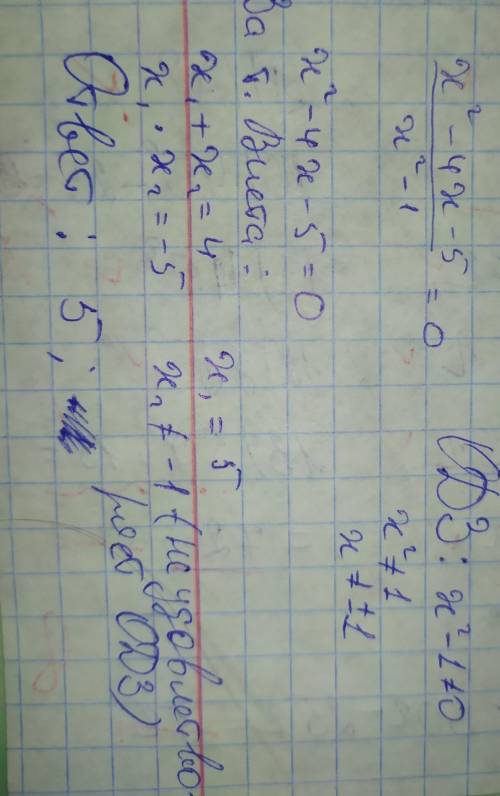 x² - 4x - 5 / x² - 1 = 0
ОДЗ: x² - 1 ≠ 0
x² ≠ 1
x ≠ ±1
x² - 4x - 5 = 0
За т. Виета:
x₁ + x₂ = 4
x₁ · x₂ = -5
x₁ = 5
x₂ ≠ -1 (не удовлетво-
ряет ОДЗ)
Ответ: 5;